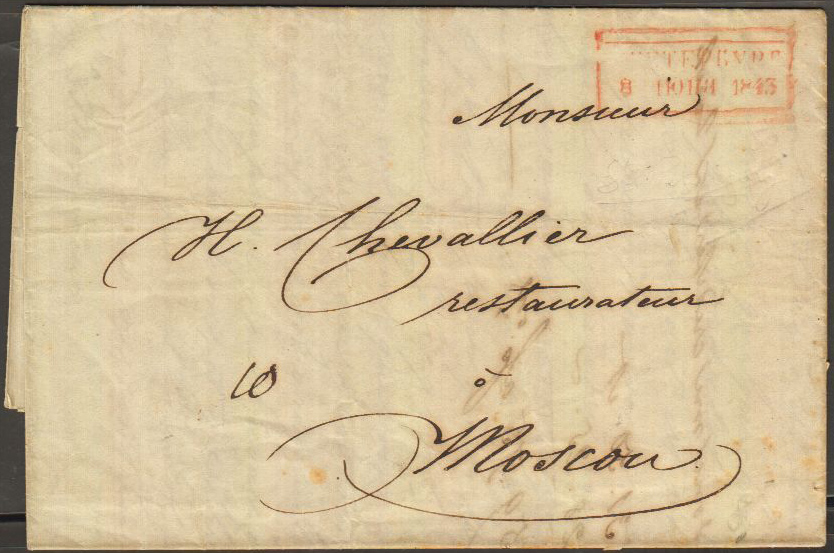 С.ПЕТЕРБУРГ
8 ІЮНИ 1843
Monsieur
H. Chevallier
restaurateur
10
à
Moscou